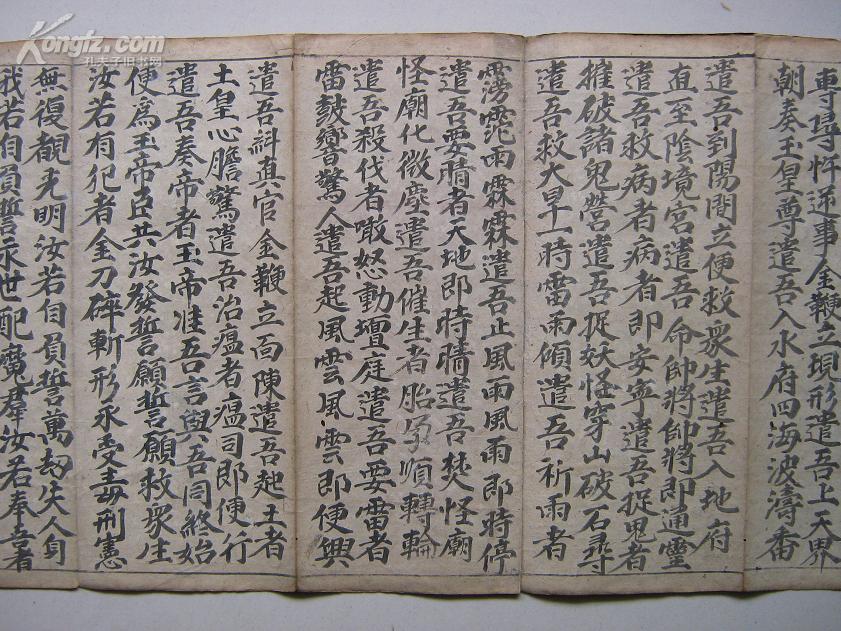 Kongfz.com
孔夫子旧书网
專尋忤逆事金鞭立現形遣吾上天界
朝奏玉皇尊遣吾入水府四海波濤番
遣吾到陽間立便救眾生遣吾入地府
直至陰境宮遣吾命帥將帥將即通靈
遣吾救病者病者即安寧遣吾捉鬼者
摧破諸鬼營遣吾捉妖怪穿山破石尋
遣吾救大旱一時雷雨傾遣吾祈雨者
霶霓雨霖霖遣吾止風雨風雨即時停
遣吾要晴者天地即時晴遣吾焚怪廟
怪廟化微塵遣吾催生者胎孕順轉輪
遣吾殺伐者嗷怒動壇庭遣吾要雷者
雷鼓響驚人遣吾起風雲風雲即便興
遣吾糾真官金鞭立面陳遣吾起土者
土皇心膽驚遣吾治瘟者瘟司即便行
遣吾奏帝者玉帝准吾言與吾同終始
便為玉帝臣共汝發誓願誓願救眾生
汝若有犯者金刀碎斬形永受毒刑憲
無復覩光明汝若自負誓萬劫失人身
我若自負誓永世配魔羣汝若奉吾者